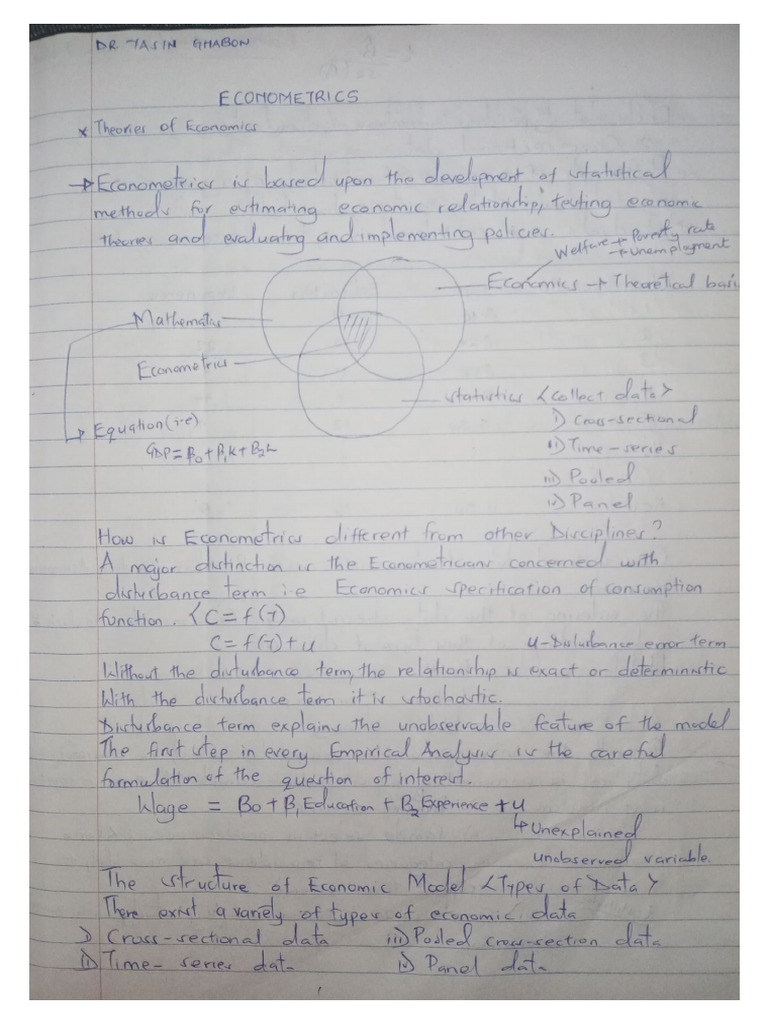 DR YASIN GHABON
ECONOMETRICS
* Theories of Economics
→ Econometrics is based upon the development of statistical
methods for estimating economic relationship; testing economic
theories and evaluating and implementing policies.
Welfare → Poverty rate
→ unemployment
Economics → Theoretical basi
Mathematics
Econometrics
Statistics <Collect data>
i) Cross-sectional
Equation (i.e)
GDP = B0 + B1K + B2L
ii) Time-series
iii) Pooled
iv) Panel
How is Econometrics different from other Disciplines?
A major distinction is the Econometricians concerned with
disturbance term i.e Economics specification of consumption
function. <C = f(Y)
C = f(Y) + u u - Disturbance error term
Without the disturbance term, the relationship is exact or deterministic
With the disturbance term it is stochastic.
Disturbance term explains the unobservable feature of the model
The first step in every Empirical Analysis is the careful
formulation of the question of interest.
Wage = B0 + B1 Education + B2 Experience + u
↳ Unexplained
unobserved variable.
The structure of Economic Model <Types of Data>
There exist a variety of types of economic data
i) Cross-sectional data iii) Pooled cross-section data
ii) Time-series data iv) Panel data